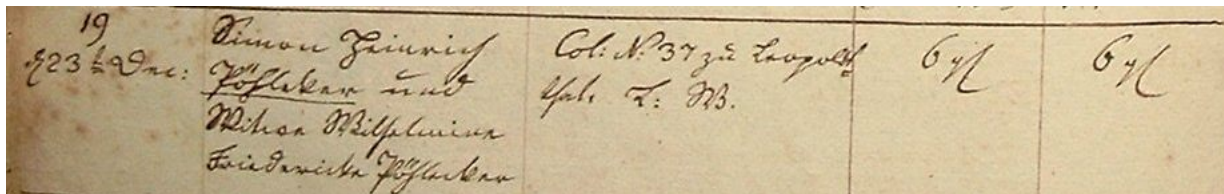 19
d 23t Dec:
Simon Heinrich
Pöhleker und
Witwe Wilhelmine
Friedericke Pöhlecker
Col: N. 37 zu Leopolds
thal. L: W.
6 gl
6 gl